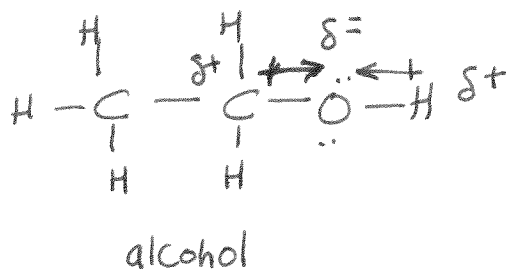 H H δ=
δ+
H - C - C - Ö - H δ+
H H
alcohol